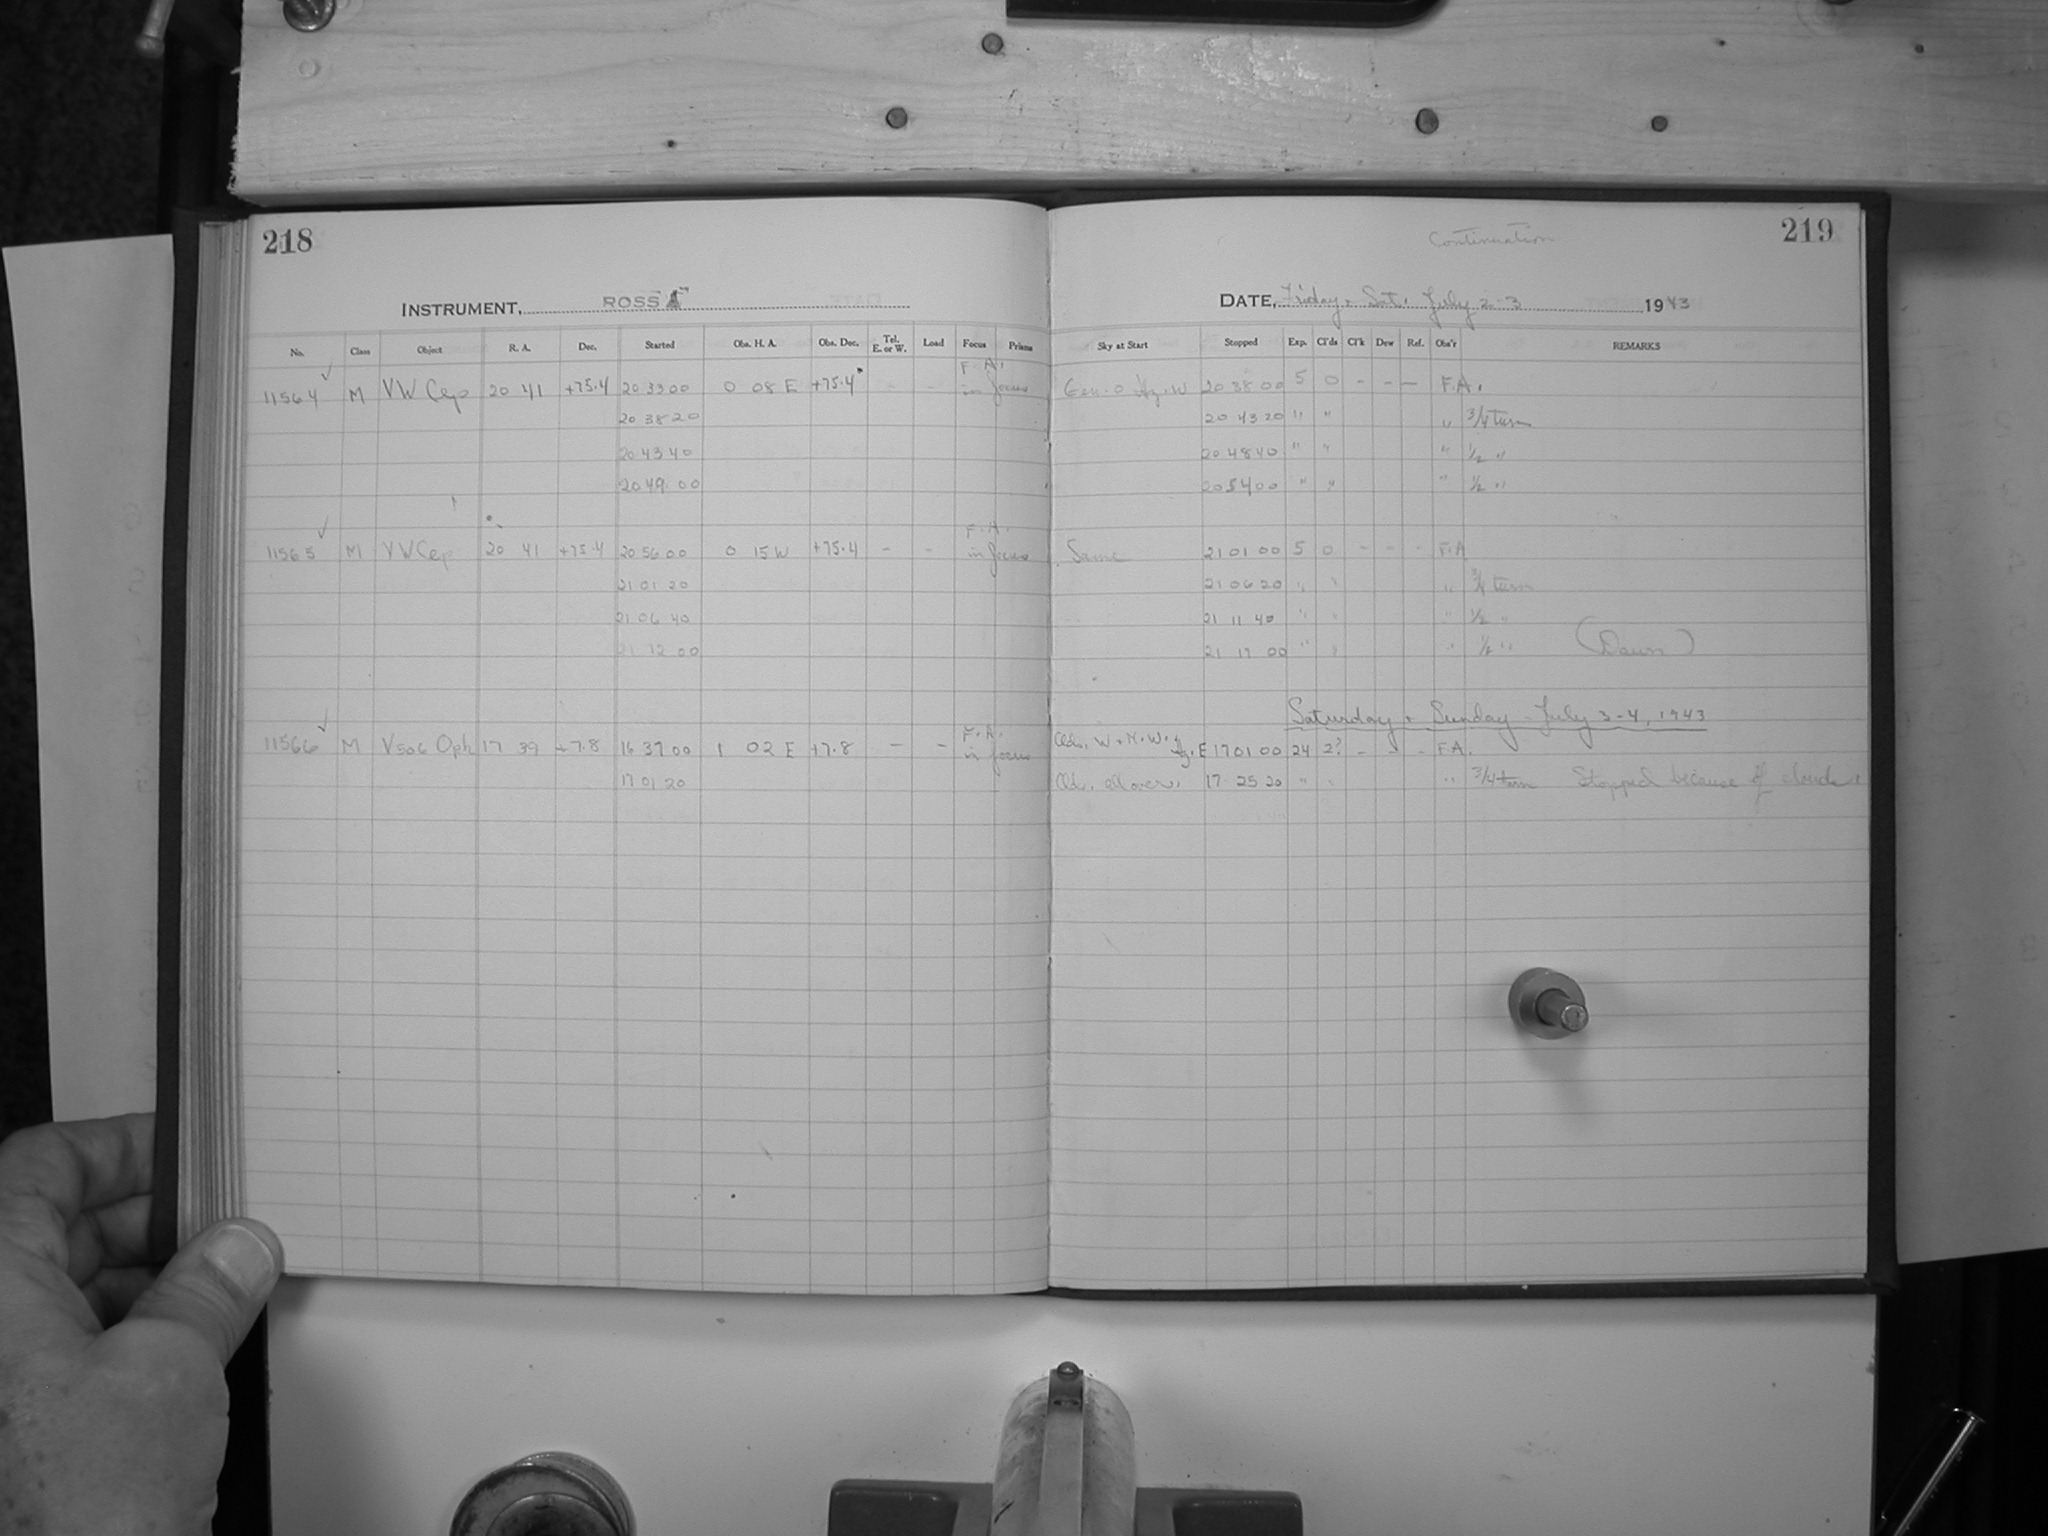 218
INSTRUMENT, ROSS
No. Class Object R. A. Dec. Started Obs. H. A. Obs. Dec. Tel. E. or W. Load Focus Prisms
11564 ✓ M VW Cep 20 41 +75.4 20 33 00 0 08 E +75.4 - - F.A. in focus
20 38 20
20 43 40
20 49 00
11565 ✓ M VW Cep 20 41 +75.4 20 56 00 0 15 W +75.4 - - F.A. in focus
21 01 20
21 06 40
21 12 00
11566 ✓ M V506 Oph 17 39 +7.8 16 37 00 1 02 E +7.8 - - F.A. in focus
17 01 20
Continuation
219
DATE, Friday + Sat. July 2-3 1943
Sky at Start Stopped Exp. Cl'ds Cl'k Dew Ref. Obs'r REMARKS
20 38 00 5 0 - - - F.A.
20 43 20 " " " 3/4 turn
20 48 40 " " " 1/2 "
20 54 00 " " " 1/2 "
Same 21 01 00 5 0 - - - F.A
21 06 20 " " " 3/4 turn
21 11 40 " " " 1/2 "
21 17 00 " " " 1/2 " (Dawn)
Saturday + Sunday - July 3-4, 1943
Clds. W + N.W. + Hz. E 17 01 00 24 2? - - - F.A.
Clds. all over. 17 25 20 " " " 3/4 turn Stopped because of clouds